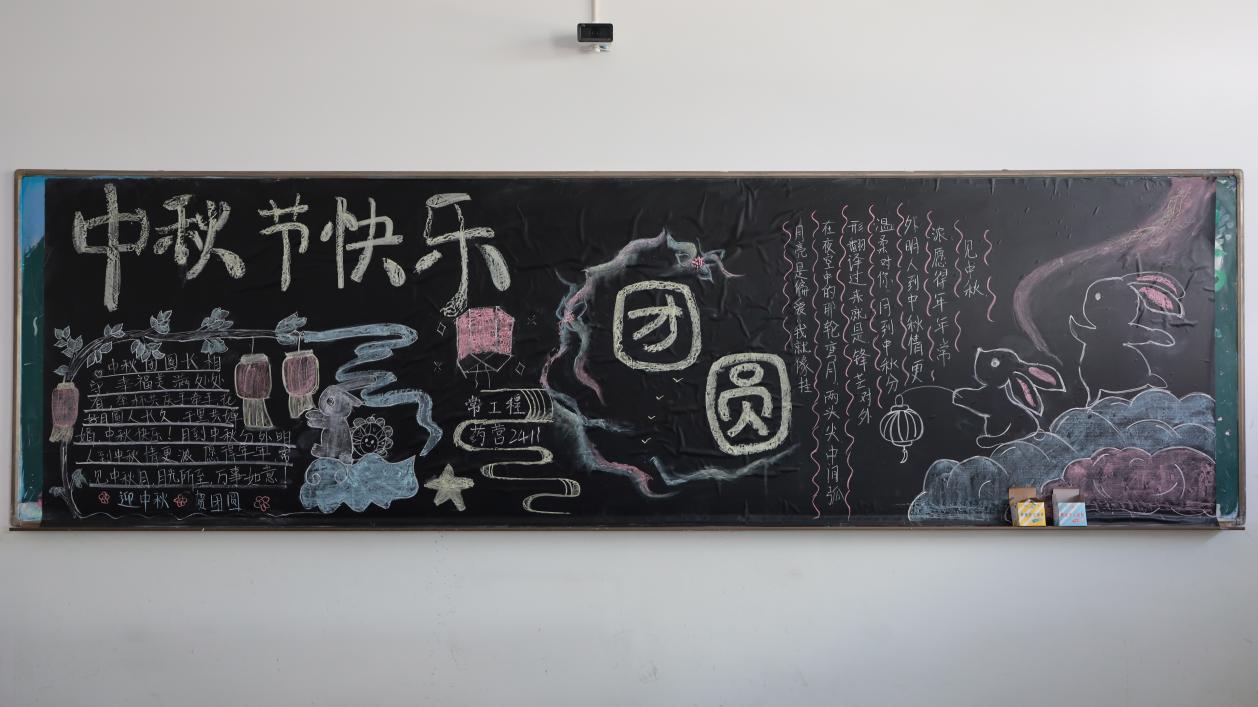 中秋节快乐
中秋团圆长相
守 幸福美满处处
月圆人长久 千里共婵
娟 中秋快乐!月到中秋分外明
人到中秋情更浓 愿得年年常
见中秋月 月光所至 万事如意
迎中秋 贺团圆
常工程
药营2411
团
圆
见中秋
浓愿得年年常
外明人到中秋情更
温柔对你月到中秋分
形翻译过来就是锋芒对外
在夜空中的那轮弯月两头尖中间弧
月亮是偏爱我就像挂